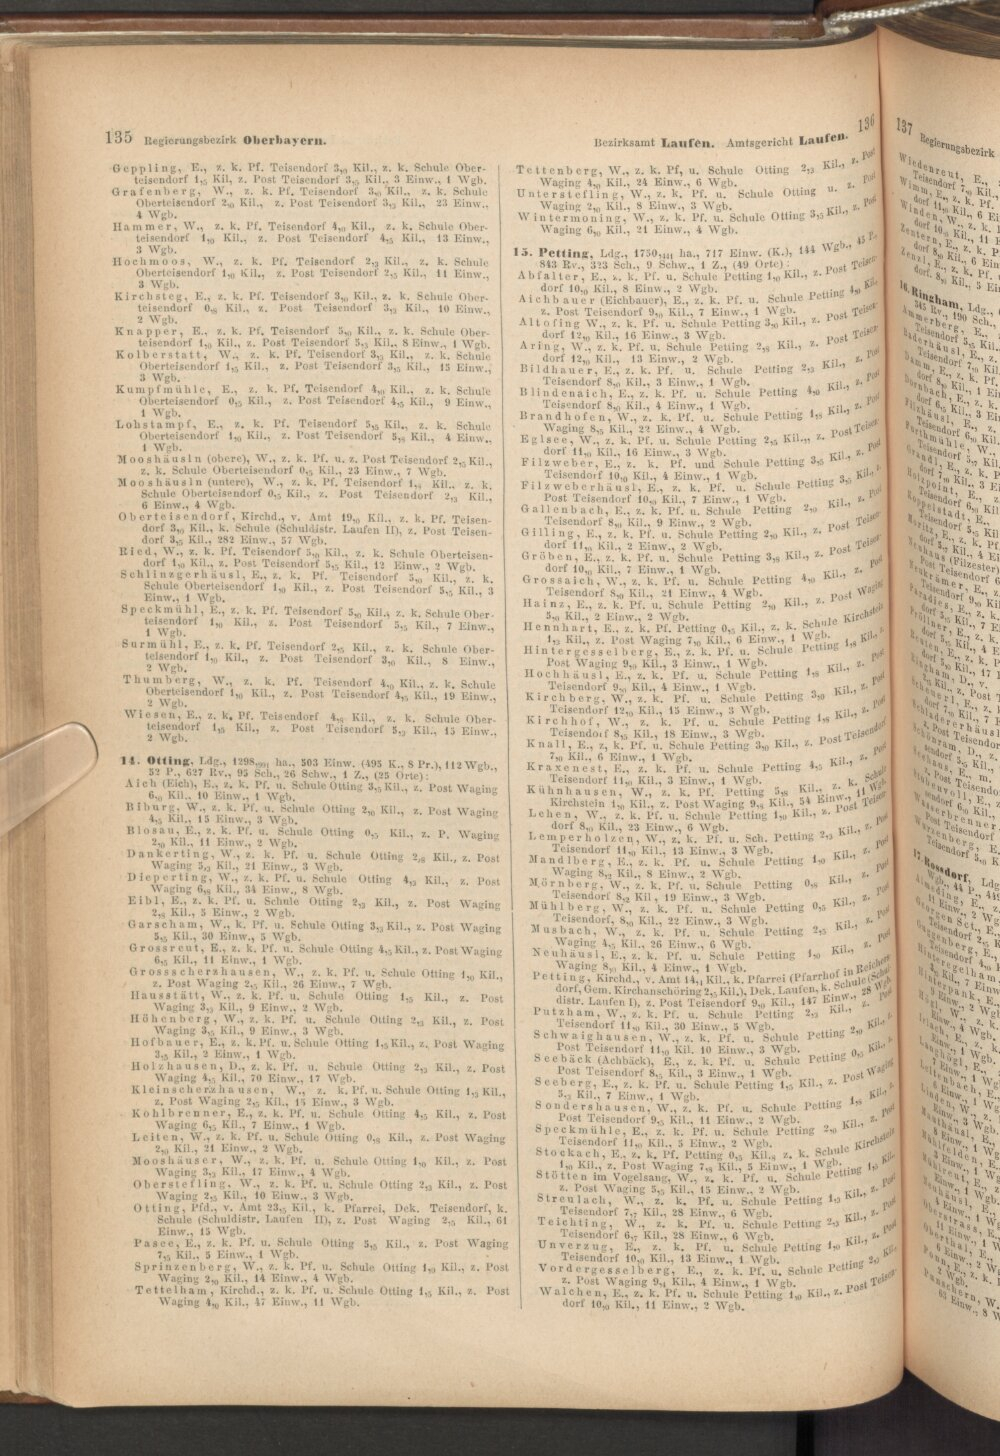 135 Regierungsbezirk Oberbayern.
Geppling, E., z. k. Pf. Teisendorf 3,0 Kil., z. k. Schule Ober-
teisendorf 1,5 Kil. z. Post Teisendorf 3,5 Kil., 3 Einw., 1 Wgb.
Grafenberg, W., z. k. Pf. Teisendorf 3,0 Kil., z. k. Schule
Oberteisendorf 2,0 Kil., z. Post Teisendorf 3,3 Kil., 23 Einw.,
4 Wgb.
Hammer, W., z. k. Pf. Teisendorf 4,0 Kil., z. k. Schule Ober-
teisendorf 1,0 Kil., z. Post Teisendorf 4,5 Kil., 13 Einw.,
3 Wgb.
Hochmoos, W., z. k. Pf. Teisendorf 2,3 Kil., z. k. Schule
Oberteisendorf 1,0 Kil., z. Post Teisendorf 2,5 Kil., 11 Einw.,
3 Wgb.
Kirchsteg, E., z. k. Pf. Teisendorf 3,0 Kil., z. k. Schule Ober-
teisendorf 0,8 Kil., z. Post Teisendorf 3,3 Kil., 10 Einw.,
2 Wgb.
Knapper, E., z. k. Pf. Teisendorf 5,0 Kil., z. k. Schule Ober-
teisendorf 1,0 Kil., z. Post Teisendorf 5,5 Kil., 8 Einw., 1 Wgb.
Kolberstatt, W., z. k. Pf. Teisendorf 3,3 Kil., z. k. Schule
Oberteisendorf 1,5 Kil., z. Post Teisendorf 3,5 Kil., 15 Einw.,
3 Wgb.
Kumpfmühle, E., z. k. Pf. Teisendorf 4,0 Kil., z. k. Schule
Oberteisendorf 0,5 Kil., z. Post Teisendorf 4,5 Kil., 9 Einw.,
1 Wgb.
Lohstampf, E., z. k. Pf. Teisendorf 5,5 Kil., z. k. Schule
Oberteisendorf 1,0 Kil., z. Post Teisendorf 5,8 Kil., 4 Einw.,
1 Wgb.
Mooshäusln (obere), W., z. k. Pf. u. z. Post Teisendorf 2,5 Kil.,
z. k. Schule Oberteisendorf 0,5 Kil., 23 Einw., 7 Wgb.
Mooshäusln (untere), W., z. k. Pf. Teisendorf 1,0 Kil., z. k.
Schule Oberteisendorf 0,5 Kil., z. Post Teisendorf 2,3 Kil.,
6 Einw., 4 Wgb.
Oberteisendorf, Kirchd., v. Amt 19,0 Kil., z. k. Pf. Teisen-
dorf 3,0 Kil., k. Schule (Schuldistr. Laufen II), z. Post Teisen-
dorf 3,5 Kil., 282 Einw., 57 Wgb.
Ried, W., z. k. Pf. Teisendorf 5,0 Kil., z. k. Schule Oberteisen-
dorf 1,0 Kil., z. Post Teisendorf 5,5 Kil., 12 Einw., 2 Wgb.
Schlinzgerhäusl, E., z. k. Pf. Teisendorf 5,0 Kil., z. k.
Schule Oberteisendorf 1,0 Kil., z. Post Teisendorf 5,5 Kil., 3
Einw., 1 Wgb.
Speckmühl, E., z. k. Pf. Teisendorf 5,0 Kil., z. k. Schule Ober-
teisendorf 1,0 Kil., z. Post Teisendorf 5,5 Kil., 7 Einw.,
1 Wgb.
Surmühl, E., z. k. Pf. Teisendorf 2,5 Kil., z. k. Schule Ober-
teisendorf 1,0 Kil., z. Post Teisendorf 3,0 Kil., 8 Einw.,
2 Wgb.
Thumberg, W., z. k. Pf. Teisendorf 4,0 Kil., z. k. Schule
Oberteisendorf 1,0 Kil., z. Post Teisendorf 4,5 Kil., 19 Einw.,
2 Wgb.
Wiesen, E., z. k. Pf. Teisendorf 4,8 Kil., z. k. Schule Ober-
teisendorf 1,5 Kil., z. Post Teisendorf 5,3 Kil., 15 Einw.,
2 Wgb.
14. Otting, Ldg., 1298,991 ha., 503 Einw. (495 K., 8 Pr.), 112 Wgb.,
52 P., 627 Rv., 95 Sch., 26 Schw., 1 Z., (25 Orte):
Aich (Eich), E., z. k. Pf. u. Schule Otting 3,5 Kil., z. Post Waging
6,0 Kil., 10 Einw., 1 Wgb.
Biburg, W., z. k. Pf. u. Schule Otting 2,0 Kil., z. Post Waging
4,5 Kil., 15 Einw., 3 Wgb.
Blosau, E., z. k. Pf. u. Schule Otting 0,5 Kil., z. P. Waging
2,0 Kil., 11 Einw., 2 Wgb.
Dankerting, W., z. k. Pf. u. Schule Otting 2,8 Kil., z. Post
Waging 5,3 Kil., 21 Einw., 3 Wgb.
Dieperting, W., z. k. Pf. u. Schule Otting 4,3 Kil., z. Post
Waging 6,8 Kil., 34 Einw., 8 Wgb.
Eibl, E., z. k. Pf. u. Schule Otting 2,3 Kil., z. Post Waging
2,8 Kil., 5 Einw., 2 Wgb.
Garscham, W., k. Pf. u. Schule Otting 3,3 Kil., z. Post Waging
5,5 Kil., 30 Einw., 5 Wgb.
Grossreut, E., z. k. Pf. u. Schule Otting 4,5 Kil., z. Post Waging
6,5 Kil., 11 Einw., 1 Wgb.
Grossscherzhausen, W., z. k. Pf. u. Schule Otting 1,0 Kil.,
z. Post Waging 2,5 Kil., 26 Einw., 7 Wgb.
Hausstätt, W., z. k. Pf. u. Schule Otting 1,5 Kil., z. Post
Waging 3,5 Kil., 9 Einw., 2 Wgb.
Höhenberg, W., z. k. Pf. u. Schule Otting 2,3 Kil., z. Post
Waging 3,5 Kil., 9 Einw., 3 Wgb.
Hofbauer, E., z. k. Pf. u. Schule Otting 1,5 Kil., z. Post Waging
3,5 Kil., 2 Einw., 1 Wgb.
Holzhausen, D., z. k. Pf. u. Schule Otting 2,3 Kil., z. Post
Waging 4,5 Kil., 70 Einw., 17 Wgb.
Kleinscherzhausen, W., z. k. Pf. u. Schule Otting 1,3 Kil.,
z. Post Waging 2,5 Kil., 15 Einw., 3 Wgb.
Kohlbrenner, E., z. k. Pf. u. Schule Otting 4,5 Kil., z. Post
Waging 6,5 Kil., 7 Einw., 1 Wgb.
Leiten, W., z. k. Pf. u. Schule Otting 0,8 Kil., z. Post Waging
2,0 Kil., 21 Einw., 2 Wgb.
Mooshäuser, W., z. k. Pf. u. Schule Otting 1,0 Kil., z. Post
Waging 3,3 Kil., 17 Einw., 4 Wgb.
Oberstefling, W., z. k. Pf. u. Schule Otting 2,3 Kil., z. Post
Waging 2,5 Kil., 10 Einw., 3 Wgb.
Otting, Pfd., v. Amt 23,5 Kil., k. Pfarrei, Dek. Teisendorf, k.
Schule (Schuldistr. Laufen II), z. Post Waging 2,5 Kil., 61
Einw., 15 Wgb.
Pasee, E., z. k. Pf. u. Schule Otting 5,5 Kil., z. Post Waging
7,5 Kil., 5 Einw., 1 Wgb.
Sprinzenberg, W., z. k. Pf. u. Schule Otting 1,0 Kil., z. Post
Waging 2,0 Kil., 14 Einw., 4 Wgb.
Tettelham, Kirchd., z. k. Pf. u. Schule Otting 1,5 Kil., z. Post
Waging 4,0 Kil., 47 Einw., 11 Wgb.
Bezirksamt Laufen. Amtsgericht Laufen. 136
Tettenberg, W., z. k. Pf, u. Schule Otting 2,3 Kil., z. Post
Waging 4,0 Kil., 24 Einw., 6 Wgb.
Unterstefling, W., z. k. Pf. u. Schule Otting u. z. Post
Waging 2,0 Kil., 8 Einw., 3 Wgb.
Wintermoning, W., z. k. Pf. u. Schule Otting 3,5 Kil., z. Post
Waging 6,0 Kil., 21 Einw., 4 Wgb.
15. Petting, Ldg., 1750,441 ha., 717 Einw. (K.), 144 Wgb., 45 P.,
843 Rv., 323 Sch., 9 Schw., 1 Z., (49 Orte):
Abfalter, E., z. k. Pf. u. Schule Petting 1,0 Kil., z. Post Teisen-
dorf 10,0 Kil., 8 Einw., 2 Wgb.
Aichbauer (Eichbauer), E., z. k. Pf. u. Schule Petting 4,0 Kil.,
z. Post Teisendorf 9,0 Kil., 7 Einw., 1 Wgb.
Altofing W., z. k. Pf. u. Schule Petting 3,0 Kil., z. Post Teisen-
dorf 12,0 Kil., 16 Einw., 3 Wgb.
Aring, W., z. k. Pf. u. Schule Petting 2,8 Kil., z. Post Teisen-
dorf 12,0 Kil., 13 Einw., 2 Wgb.
Bildhauer, E., z. k. Pf. u. Schule Petting 2,3 Kil., z. Post
Teisendorf 8,0 Kil., 3 Einw., 1 Wgb.
Blindenaich, E., z. k. Pf. u. Schule Petting 4,0 Kil., z. Post
Teisendorf 8,0 Kil., 4 Einw., 1 Wgb.
Brandhofen, W., z. k. Pf. u. Schule Petting 1,8 Kil., z. Post
Waging 8,5 Kil., 22 Einw., 4 Wgb.
Eglsee, W., z. k. Pf. u. Schule Petting 2,5 Kil., z. Post Teisen-
dorf 11,0 Kil., 16 Einw., 3 Wgb.
Filzweber, E., z. k. Pf. und Schule Petting 3,5 Kil., z. Post
Teisendorf 10,0 Kil., 4 Einw., 1 Wgb.
Filzweberhäusl, E., z. k. Pf. u. Schule Petting 3,5 Kil., z.
Post Teisendorf 10,0 Kil., 7 Einw., 1 Wgb.
Gallenbach, E., z. k. Pf. u. Schule Petting 2,0 Kil., z. Post
Teisendorf 8,0 Kil., 9 Einw., 2 Wgb.
Gilling, E., z. k. Pf. u. Schule Petting 2,0 Kil., z. Post Teisen-
dorf 11,0 Kil., 2 Einw., 2 Wgb.
Gröben, E., z. k. Pf. u. Schule Petting 3,8 Kil., z. Post Teisen-
dorf 10,0 Kil., 7 Einw., 1 Wgb.
Grossaich, W., z. k. Pf. u. Schule Petting 4,0 Kil., z. Post
Teisendorf 8,0 Kil., 21 Einw., 4 Wgb.
Hainz, E., z. k. Pf. u. Schule Petting 2,0 Kil., z. Post Waging
5,0 Kil., 2 Einw., 2 Wgb.
Hennhart, E., z. k. Pf. Petting 0,5 Kil., z. k. Schule Kirchstein
1,3 Kil., z. Post Waging 7,0 Kil., 6 Einw., 1 Wgb.
Hintergesselberg, E., z. k. Pf. u. Schule Petting 1,8 Kil., z.
Post Waging 9,0 Kil., 3 Einw., 1 Wgb.
Hochhäusl, E., z. k. Pf. u. Schule Petting 1,8 Kil., z. Post
Teisendorf 9,0 Kil., 4 Einw., 1 Wgb.
Kirchberg, W., z. k. Pf. u. Schule Petting 3,0 Kil., z. Post
Teisendorf 12,0 Kil., 15 Einw., 3 Wgb.
Kirchhof, W., z. k. Pf. u. Schule Petting 1,8 Kil., z. Post
Teisendorf 8,5 Kil., 18 Einw., 3 Wgb.
Knall, E., z, k. Pf. u. Schule Petting 3,0 Kil., z. Post Teisendorf
7,0 Kil., 6 Einw., 1 Wgb.
Kraxenest, E., z. k. Pf. u. Schule Petting 4,5 Kil., z. Post
Teisendorf 11,0 Kil., 3 Einw., 1 Wgb.
Kühnhausen, W., z. k. Pf. Petting 5,8 Kil., z. k. Schule
Kirchstein 1,0 Kil., z. Post Waging 9,8 Kil., 54 Einw., 11 Wgb.
Lehen, W., z. k. Pf. u. Schule Petting 1,0 Kil., z. Post Teisen-
dorf 8,0 Kil., 23 Einw., 6 Wgb.
Lemperholzen, W., z. k. Pf. u. Sch. Petting 2,3 Kil., z. Post
Teisendorf 11,0 Kil., 13 Einw., 3 Wgb.
Mandlberg, E., z. k. Pf. u. Schule Petting 1,0 Kil., z. Post
Waging 8,2 Kil., 8 Einw., 2 Wgb.
Mörnberg, W., z. k. Pf. u. Schule Petting 0,8 Kil., z. Post
Teisendorf 8,2 Kil, 19 Einw., 3 Wgb.
Mühlberg, W., z. k. Pf. u. Schule Petting 0,5 Kil., z. Post
Teisendorf, 8,0 Kil., 22 Einw., 3 Wgb.
Musbach, W., z. k. Pf. u. Schule Petting 2,5 Kil., z. Post
Waging 4,5 Kil., 26 Einw., 6 Wgb.
Neuhäusl, E., z. k. Pf. u. Schule Petting 1,0 Kil., z. Post
Waging 8,0 Kil., 4 Einw., 1 Wgb.
Petting, Kirchd., v. Amt 14,1 Kil., k. Pfarrei (Pfarrhof in Reichers-
dorf, Gem. Kirchanschöring 2,5 Kil.), Dek. Laufen, k. Schule (Schul-
distr. Laufen I), z. Post Teisendorf 9,0 Kil., 147 Einw., 28 Wgb.
Putzham, W., z. k. Pf. u. Schule Petting 2,3 Kil., z. Post
Teisendorf 11,0 Kil., 30 Einw., 5 Wgb.
Schwaighausen, W., z. k. Pf. u. Schule Petting 2,0 Kil., z.
Post Teisendorf 11,0 Kil. 10 Einw., 3 Wgb.
Seebäck (Achbäck), E., z. k. Pf. u. Schule Petting 0,5 Kil., z.
Post Teisendorf 8,5 Kil., 3 Einw., 1 Wgb.
Seeberg, E., z. k. Pf. u. Schule Petting 1,5 Kil., z. Post Waging
5,3 Kil., 7 Einw., 1 Wgb.
Sondershausen, W., z. k. Pf. u. Schule Petting 1,8 Kil., z.
Post Teisendorf 9,5 Kil., 11 Einw., 2 Wgb.
Speckmühle, E., z. k. Pf. u. Schule Petting 2,0 Kil., z. Post
Teisendorf 11,0 Kil., 5 Einw., 2 Wgb.
Stockach, E., z. k, Pf. Petting 0,5 Kil., z. k. Schule Kirchstein
1,0 Kil., z. Post Waging 7,8 Kil., 5 Einw., 1 Wgb.
Stötten im Vogelsang, W., z. k. Pf. u. Schule Petting 1,5 Kil.,
z. Post Waging 5,5 Kil., 15 Einw., 2 Wgb.
Streulach, W., z. k. Pf. u. Schule Petting 1,3 Kil., z. Post
Teisendorf 7,7 Kil., 28 Einw., 6 Wgb.
Teichting, W., z. k. Pf. u. Schule Petting 2,3 Kil., z. Post
Teisendorf 6,7 Kil., 28 Einw., 6 Wgb.
Unverzug, E., z. k. Pf. u. Schule Petting 1,0 Kil., z. Post
Teisendorf 10,0 Kil., 13 Einw., 1 Wgb.
Vordergesselberg, E., z. k. Pf. u. Schule Petting 2,0 Kil.,
z. Post Waging 9,4 Kil., 4 Einw., 1 Wgb.
Walchen, E., z. k. Pf. u. Schule Petting 1,0 Kil., z. Post Teisen-
dorf 10,0 Kil., 11 Einw., 2 Wgb.
137 Regierungsbezirk
16. Ringham, Ldg.,
17 Rossdorf, Ldg